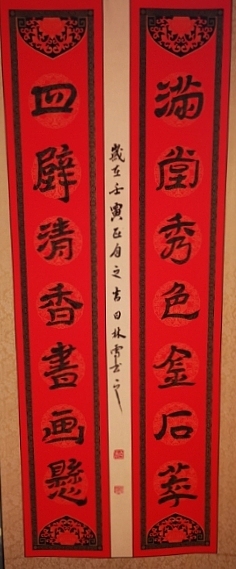 滿堂秀色金石萃
歲在壬寅正月之吉日林雪
四壁清香書画懸